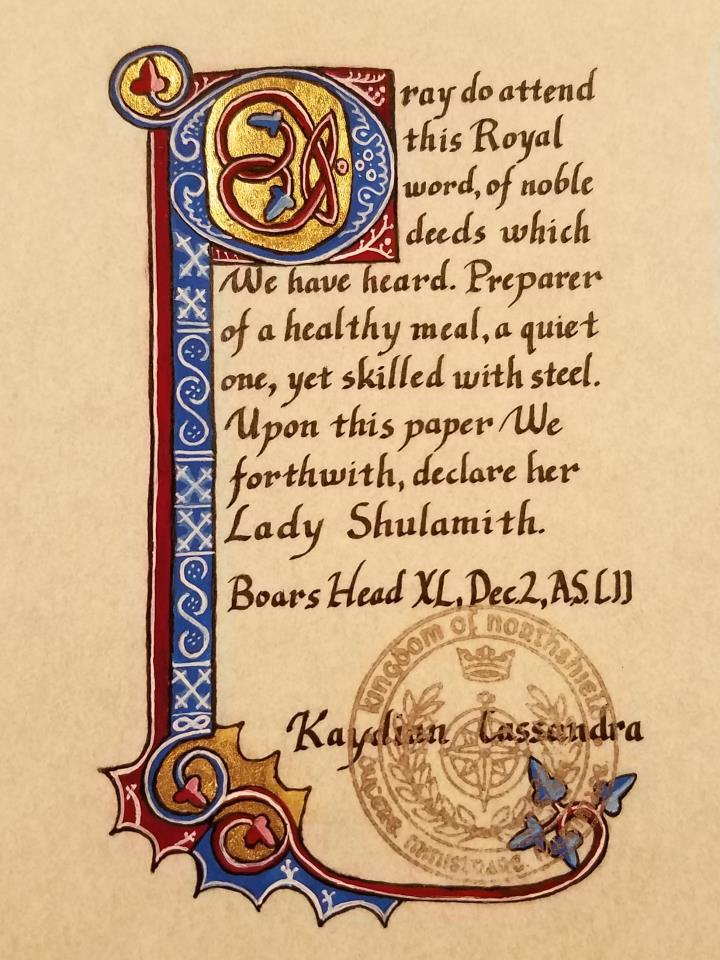 Pray do attend
this Royal
word, of noble
deeds which
We have heard. Preparer
of a healthy meal, a quiet
one, yet skilled with steel.
Upon this paper We
forthwith, declare her
Lady Shulamith.
Boars Head XL, Dec. 2, A.S. LII
kingdom of northshield
Kaydian Cassandra